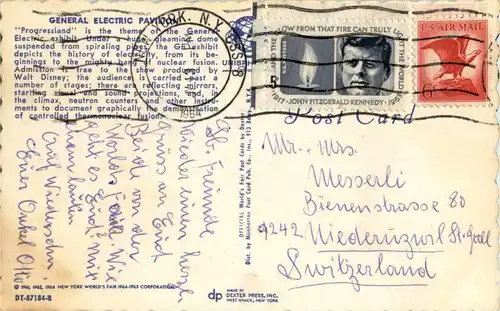 GENERAL ELECTRIC PAVILION
"Progressland" is the theme of the General
Electric exhibit. Under a huge gleaming dome
suspended from spiraling pipes, the GE exhibit
depicts the history of electricity, from its be-
ginnings to the mighty promise of nuclear fusion.
Admission is free to the show produced by
Walt Disney; the audience is carried past a
number of stages; there are reflecting mirrors,
startling visual and sound projections, and, is
the climax, neutron counters and other instru-
ments to document graphically the demonstration
of controlled thermonuclear fusion.
NEW YORK, N.Y.
1964
GLOW FROM THAT FIRE CAN TRULY LIGHT THE WORLD
5
1917 · JOHN FITZGERALD KENNEDY · 1963
U.S. AIR MAIL
6¢
Post Card
Mr. Mrs.
Messerli
Bienenstrasse 80
9242 Niederuzwil St. Gall
Switzerland
Lb. Freunde
Wieder einen herzl.
Gruss an Euch
Beide von der
Worlds Fair. Wie
geht es Euch? Mit
Auf Wiedersehn.
Euer Onkel Otto
OFFICIAL World's Fair Post Cards by Dexter
Dist. by Manhattan Post Card Pub. Co., Inc., 913 Broadway, N.Y.C.
© 1961, 1962, 1964 NEW YORK WORLD'S FAIR 1964-1965 CORPORATION
DT-87184-B
dp
MADE BY
DEXTER PRESS, INC.
WEST NYACK, NEW YORK